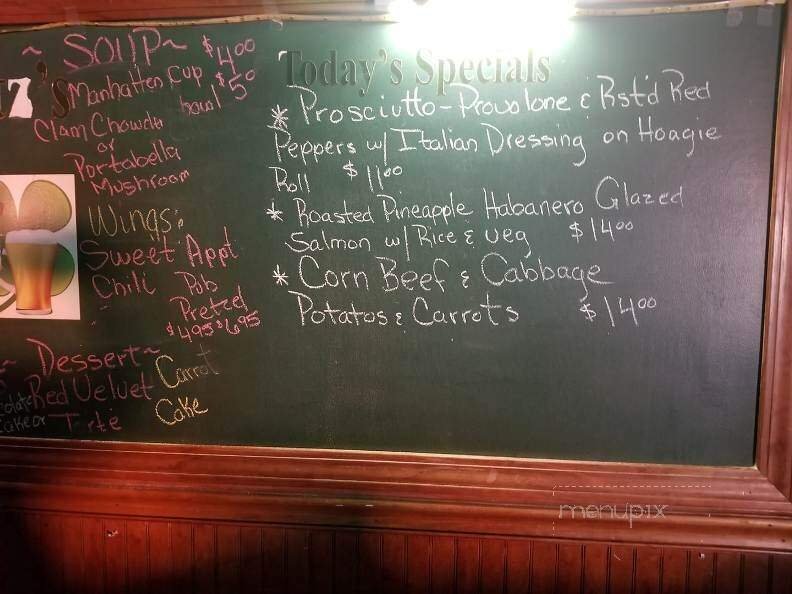 ~ SOUP ~ $4.00
Manhatten Cup
bowl $5.00
Clam Chowder
or
Portabella
Mushroom
Wings:
Sweet
Chili
Appt
Pob
Pretzel
$4.95 $6.95
~ Dessert ~
Red Velvet
Cake or
Carrot
Cake
7's
Today's Specials
* Prosciutto - Provolone & Rst'd Red
Peppers w/ Italian Dressing on Hoagie
Roll $11.00
* Roasted Pineapple Habanero Glazed
Salmon w/ Rice & veg $14.00
* Corn Beef & Cabbage
Potatos & Carrots $14.00
menupix